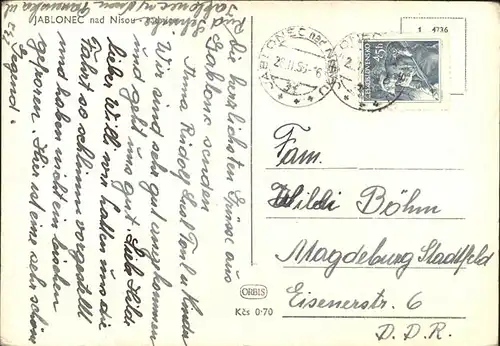 JABLONEC nad Nisou
1 4736
JABLONEC nad NISOU
ČESKOSLOVENSKO
45 h
Die herzlichsten Grüsse aus
Gablonz senden
Anna Rudolf
Wir sind sehr gut angekommen
und geht uns gut. Liebe Hilde
lieber Willi wir hatten uns die
Fahrt so schlimm vorgestellt
und haben nicht ein bischen
gefroren. Hier ist eine sehr schöne
Gegend.
Fam.
Willi Böhm
Magdeburg Stadtfeld
Eisenerstr. 6
D. D. R.
ORBIS
Kčs 0·70